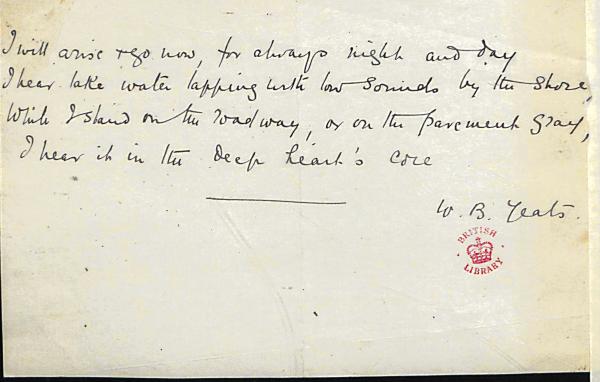 I will arise & go now, for always night and day
I hear lake water lapping with low sounds by the shore,
While I stand on the roadway, or on the pavement gray,
I hear it in the deep heart's core
W. B. Yeats.
BRITISH
LIBRARY